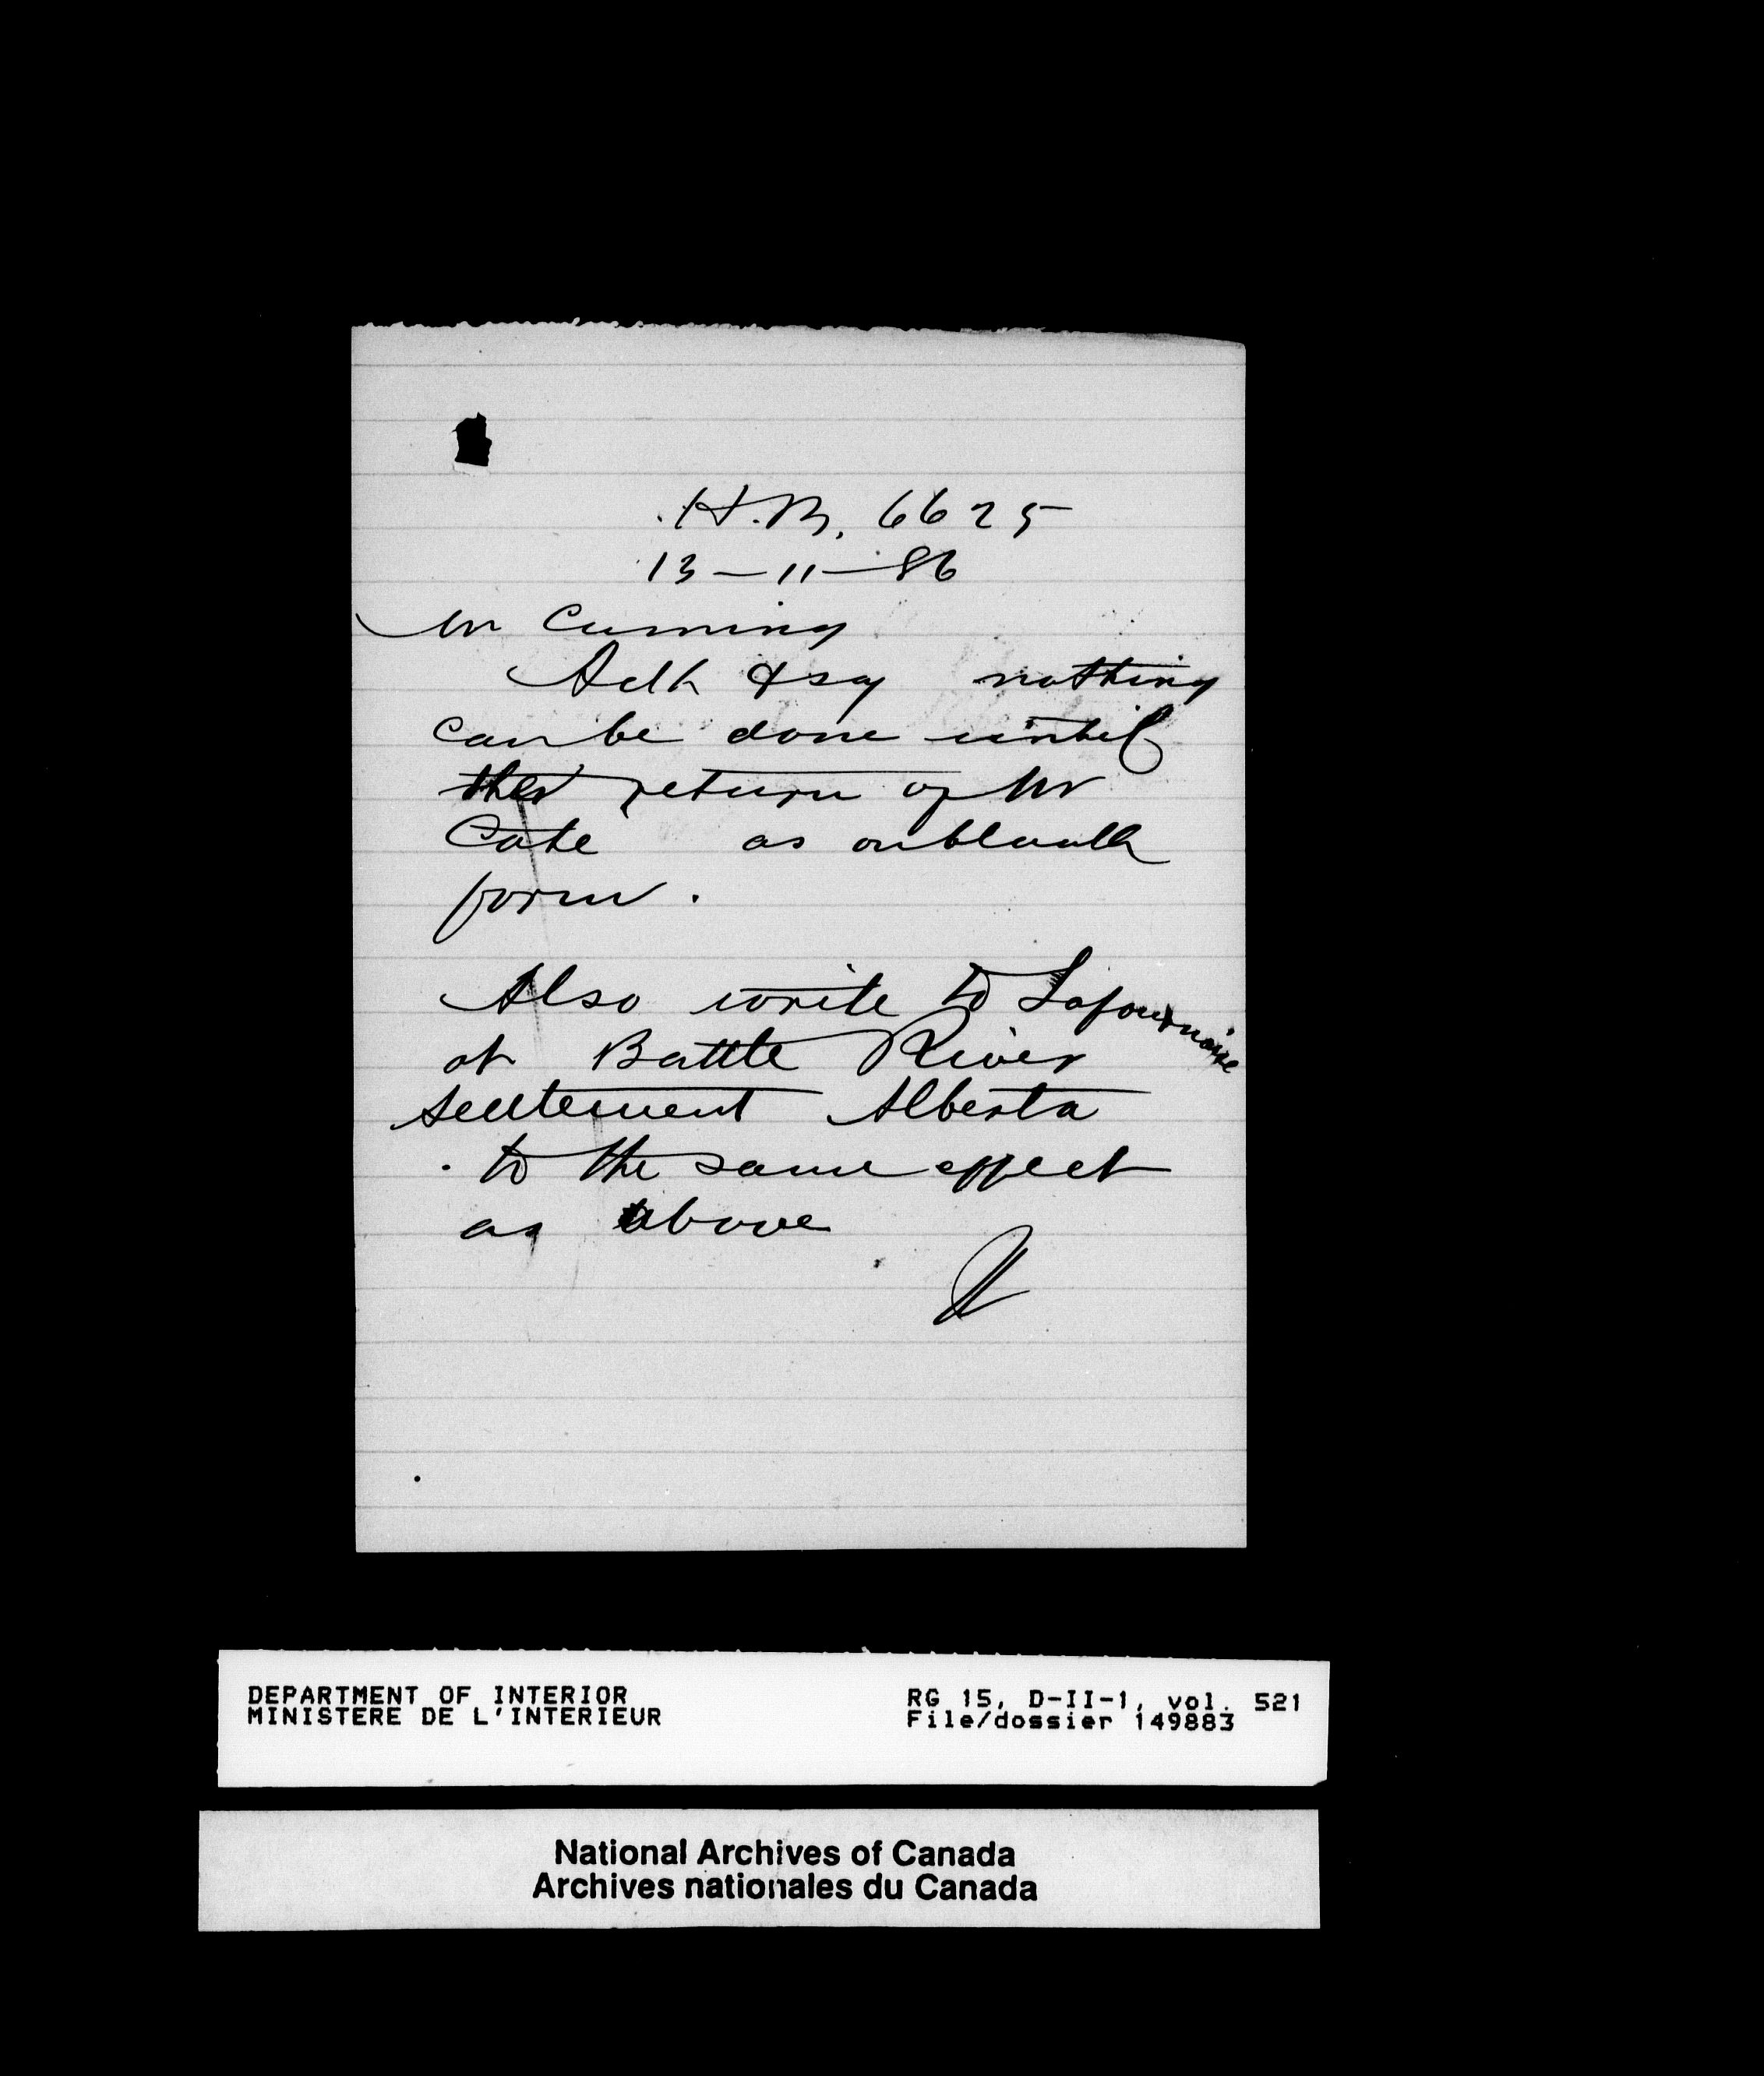 H.B. 6625
13-11-86
Mr Cuming
Ack & say nothing
can be done until
the return of Mr
Cote as on blank
form.
Also write to Lafournaise
at Battle River
settlement Alberta
to the same effect
as above
DEPARTMENT OF INTERIOR
MINISTERE DE L'INTERIEUR
RG 15, D-II-1, vol. 521
File/dossier 149883
National Archives of Canada
Archives nationales du Canada